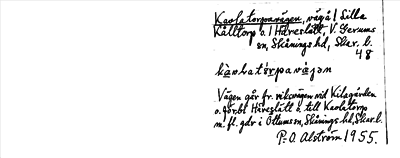 Kaolatorpavägen, väg å / Lilla
Kålltorp o. / Häreslätt, V. Gerums
sn, Skånings hd, Skar. l.
48
kàolatórpavä́jən
Vägen går fr. riksvägen vid Kilagården
o. förbi Häreslätt o. till Kaolatorp
m. fl. gdr i Ottums sn, Skånings hd, Skar. l.
P.-O. Alström 1955.